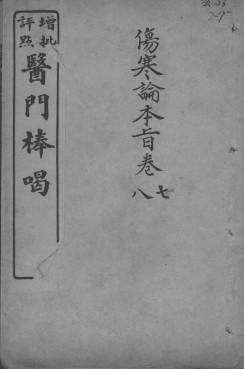 傷寒論本旨卷
七
八
增批
評點
醫門棒喝